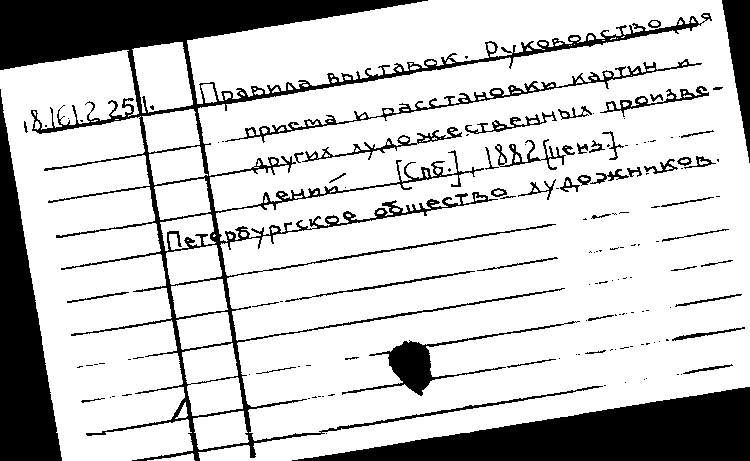 18.161.2.251. Правила выставок. Руководство для
приема и расстановки картин и
других художественных произве-
дений [Спб.], 1882 [ценз.].
Петербургское общество художников.